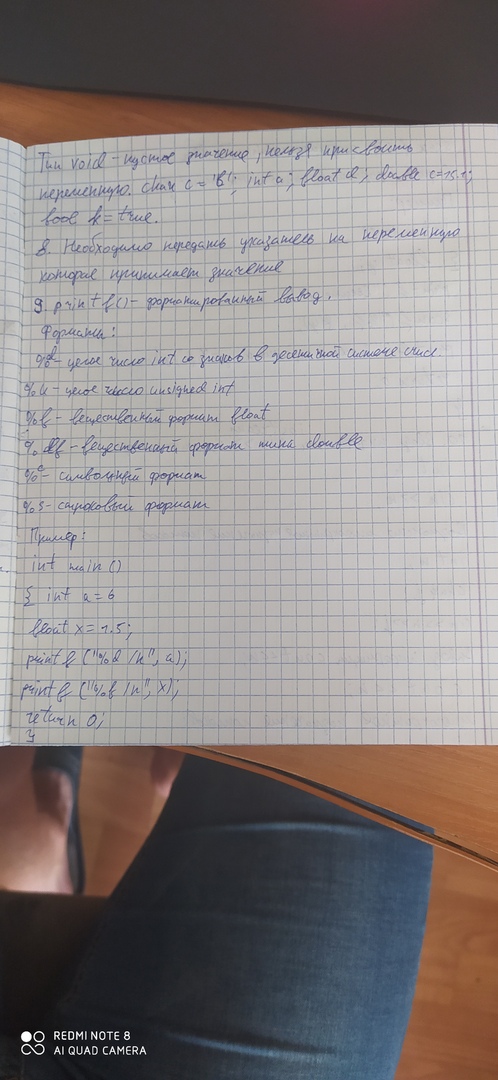 Тип void - пустое значение, нельзя присвоить
переменную. char c = 'B'; int a; float d; double c=15.1;
bool k = true.
8. Необходимо передать указатель на переменную
которая принимает значение
9. printf() - форматированный вывод.
Форматы:
%d - целое число int со знаком в десятичной системе счисл.
%u - целое число unsigned int
%f - вещественный формат float
%lf - вещественный формат типа double
%c - символьный формат
%s - строковый формат
Пример:
int main ()
{ int a = 6
float x = 1.5;
printf ("%d /n", a);
printf ("%f /n", x);
return 0;
}
REDMI NOTE 8
AI QUAD CAMERA